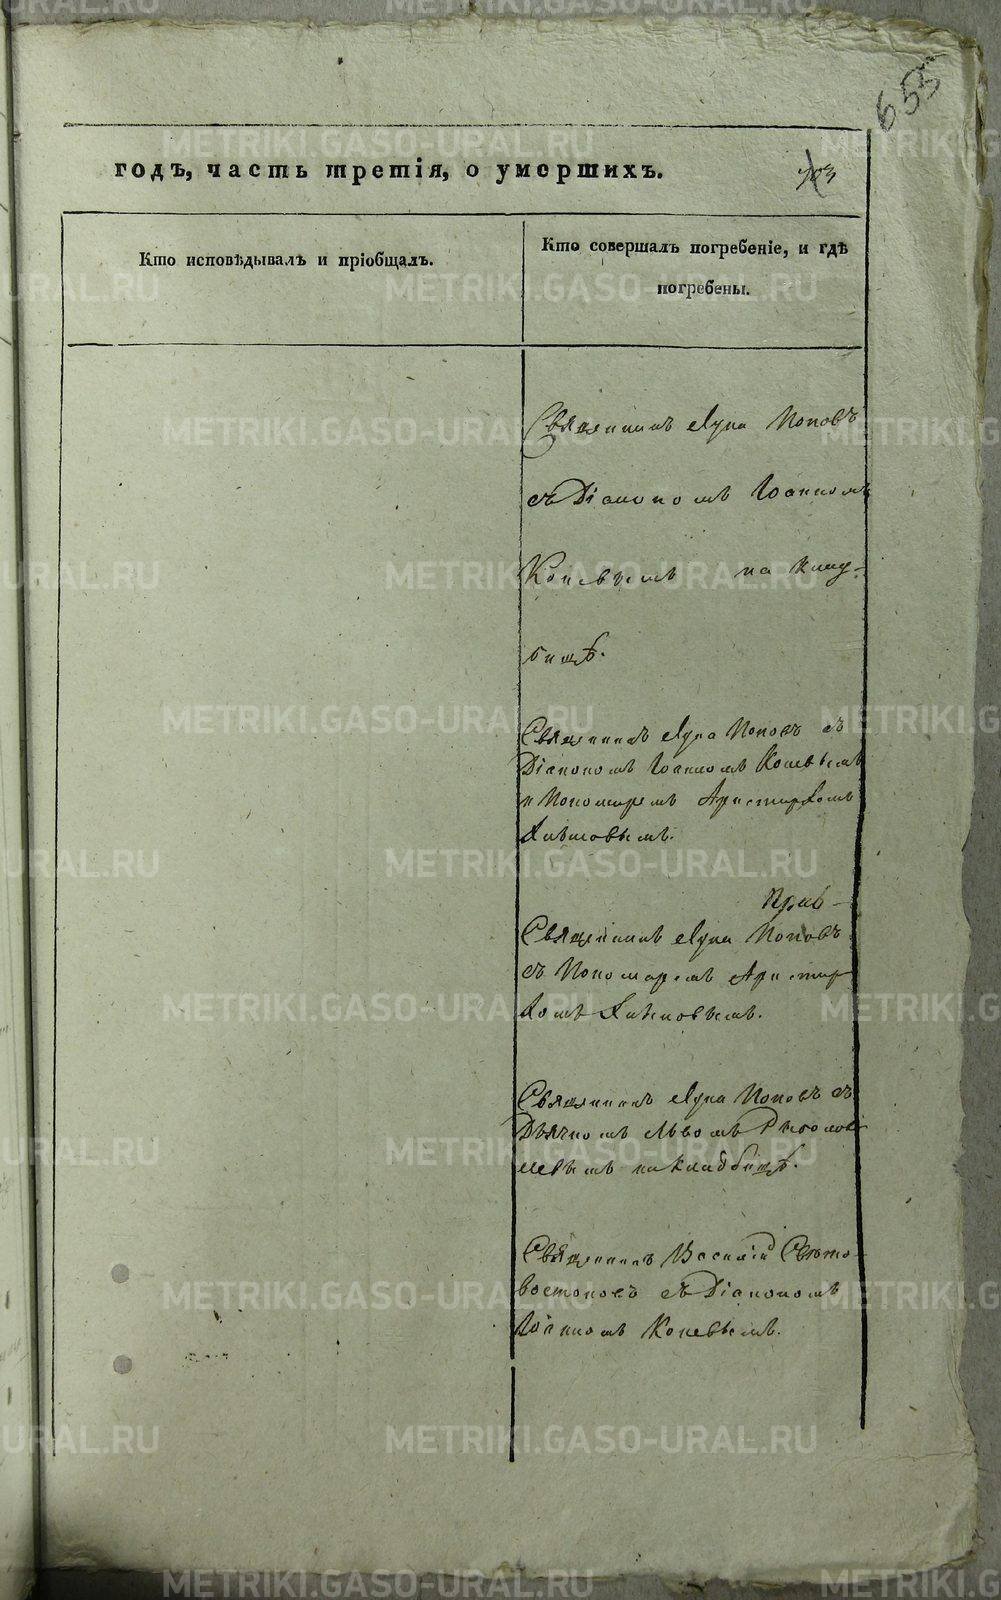 655
годъ, часть третія, о умершихъ.
703
Кто исповѣдывалъ и пріобщалъ.
Кто совершалъ погребеніе, и гдѣ
погребены.
Священникъ Лука Поповъ
съ Діакономъ Іоанномъ
Коневымъ на клад-
бищѣ.
Священникъ Лука Поповъ съ
Діакономъ Іоанномъ Коневымъ
и Пономаремъ Аристархомъ
Хлѣновымъ.
Священникъ Лука Поповъ
съ Пономаремъ Аристар
хомъ Хлѣновымъ.
Священникъ Лука Поповъ съ
Дьячкомъ Львомъ
на кладбищѣ.
Священникъ Василій Свѣто-
востоковъ съ Діакономъ
Іоанномъ Коневымъ.
METRIKI.GASO-URAL.RU